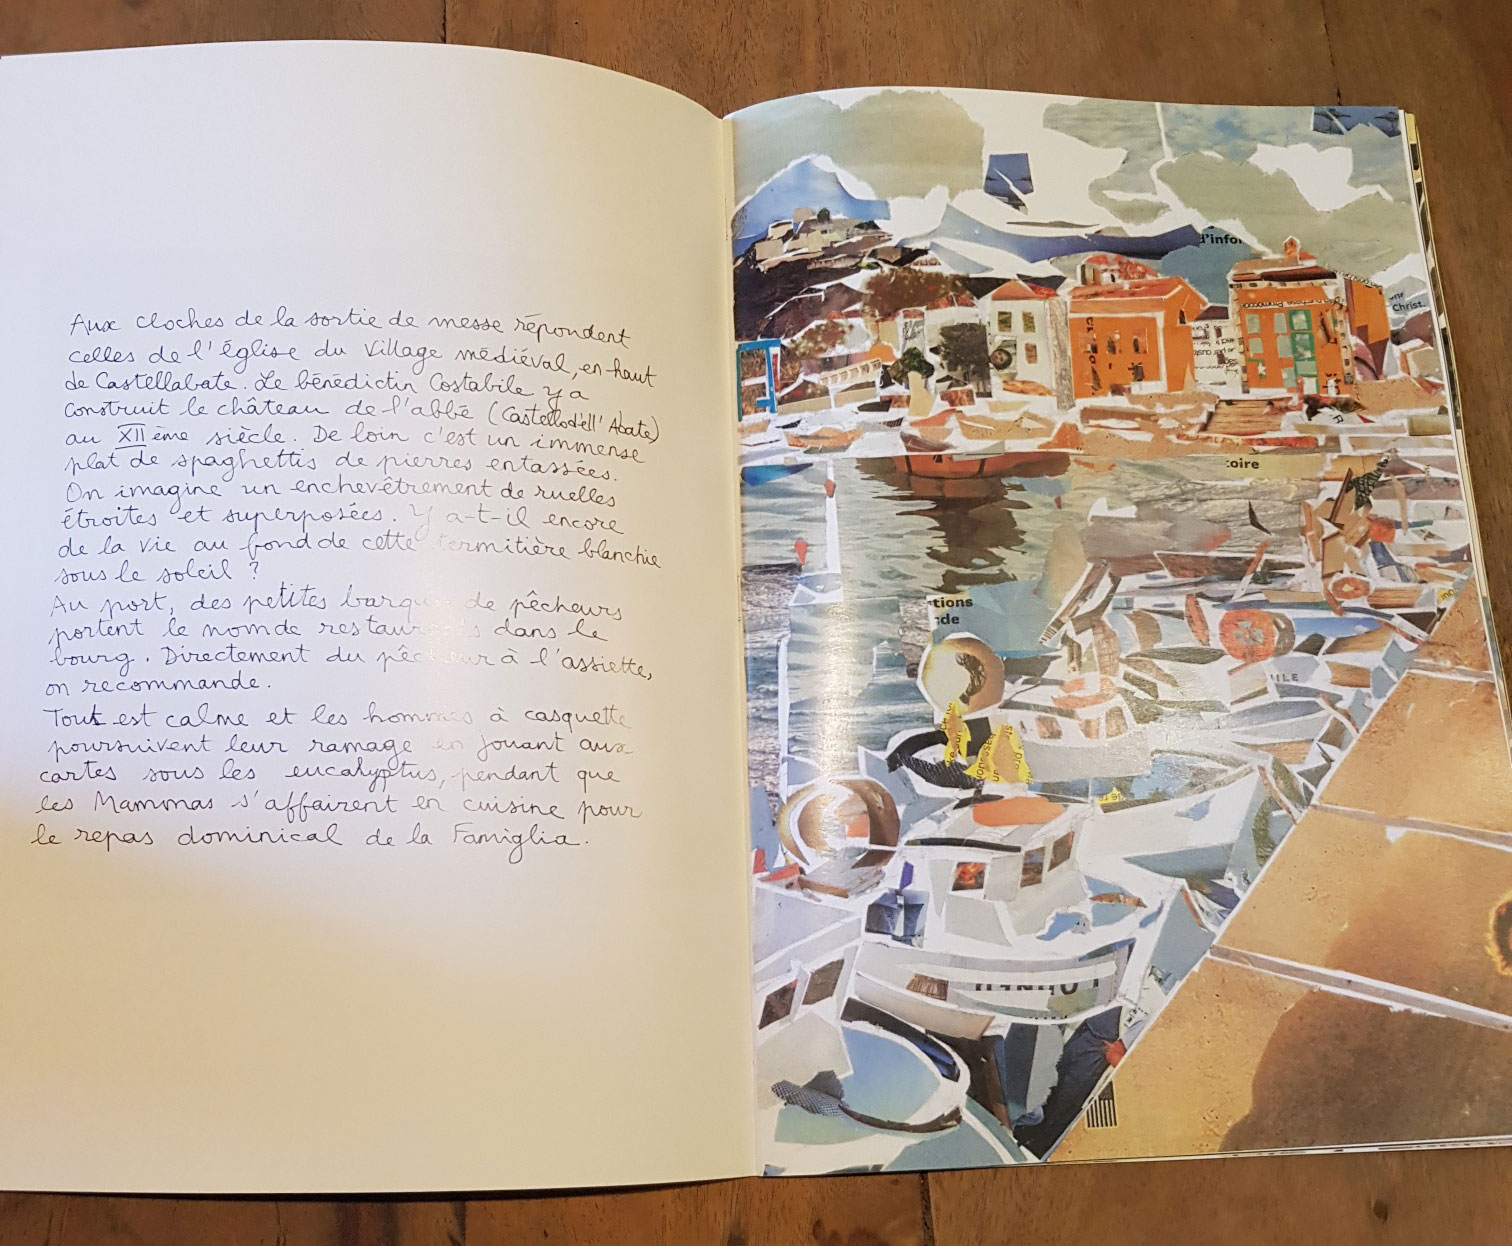 Aux cloches de la sortie de messe répondent
celles de l'église du Village médiéval, en-haut
de Castellabate. Le bénédictin Costabile y a
construit le château de l'abbé (Castello dell' Abate)
au XIIème siècle. De loin c'est un immense
plat de spaghettis de pierres entassées.
On imagine un enchevêtrement de ruelles
étroites et superposées. Y a-t-il encore
de la vie au fond de cette termitière blanchie
sous le soleil ?
Au port, des petites barques de pêcheurs
portent le nom de restaurants dans le
bourg. Directement du pêcheur à l'assiette,
on recommande.
Tout est calme et les hommes à casquette
poursuivent leur ramage en jouant aux
cartes sous les eucalyptus, pendant que
les Mammas s'affairent en cuisine pour
le repas dominical de la Famiglia.
d'infor
Christ.
toire
tions
de
ILE